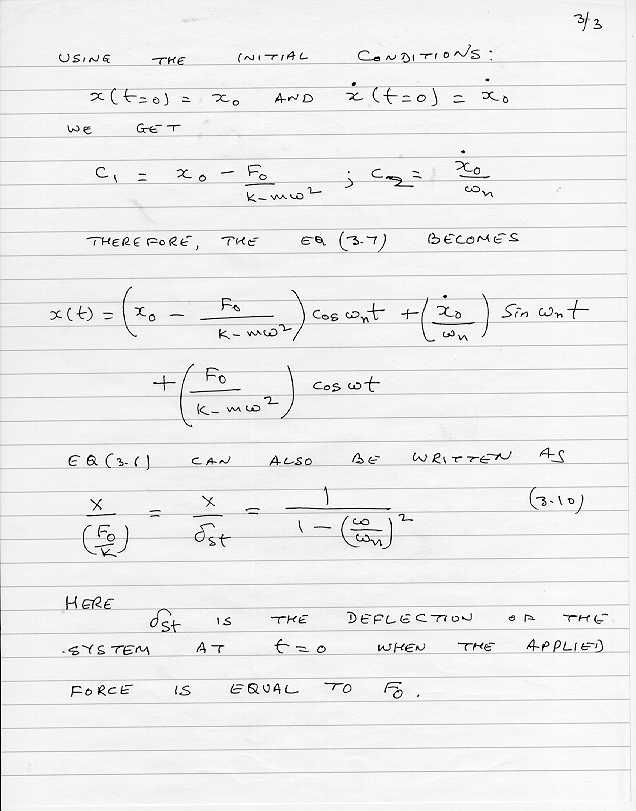 3/3
USING THE INITIAL CONDITIONS:
x(t=0) = x₀ AND ẋ(t=0) = ẋ₀
WE GET
C₁ = x₀ − F₀/(k−mω²) ; C₂ = ẋ₀/ωn
THEREFORE, THE EQ (3.7) BECOMES
x(t) = (x₀ − F₀/(k−mω²)) cos ωnt + (ẋ₀/ωn) Sin ωnt
+ (F₀/(k−mω²)) cos ωt
EQ (3.1) CAN ALSO BE WRITTEN AS
X/(F₀/k) = X/δst = 1/(1 − (ω/ωn)²) (3.10)
HERE
δst IS THE DEFLECTION OF THE
SYSTEM AT t=0 WHEN THE APPLIED
FORCE IS EQUAL TO F₀.